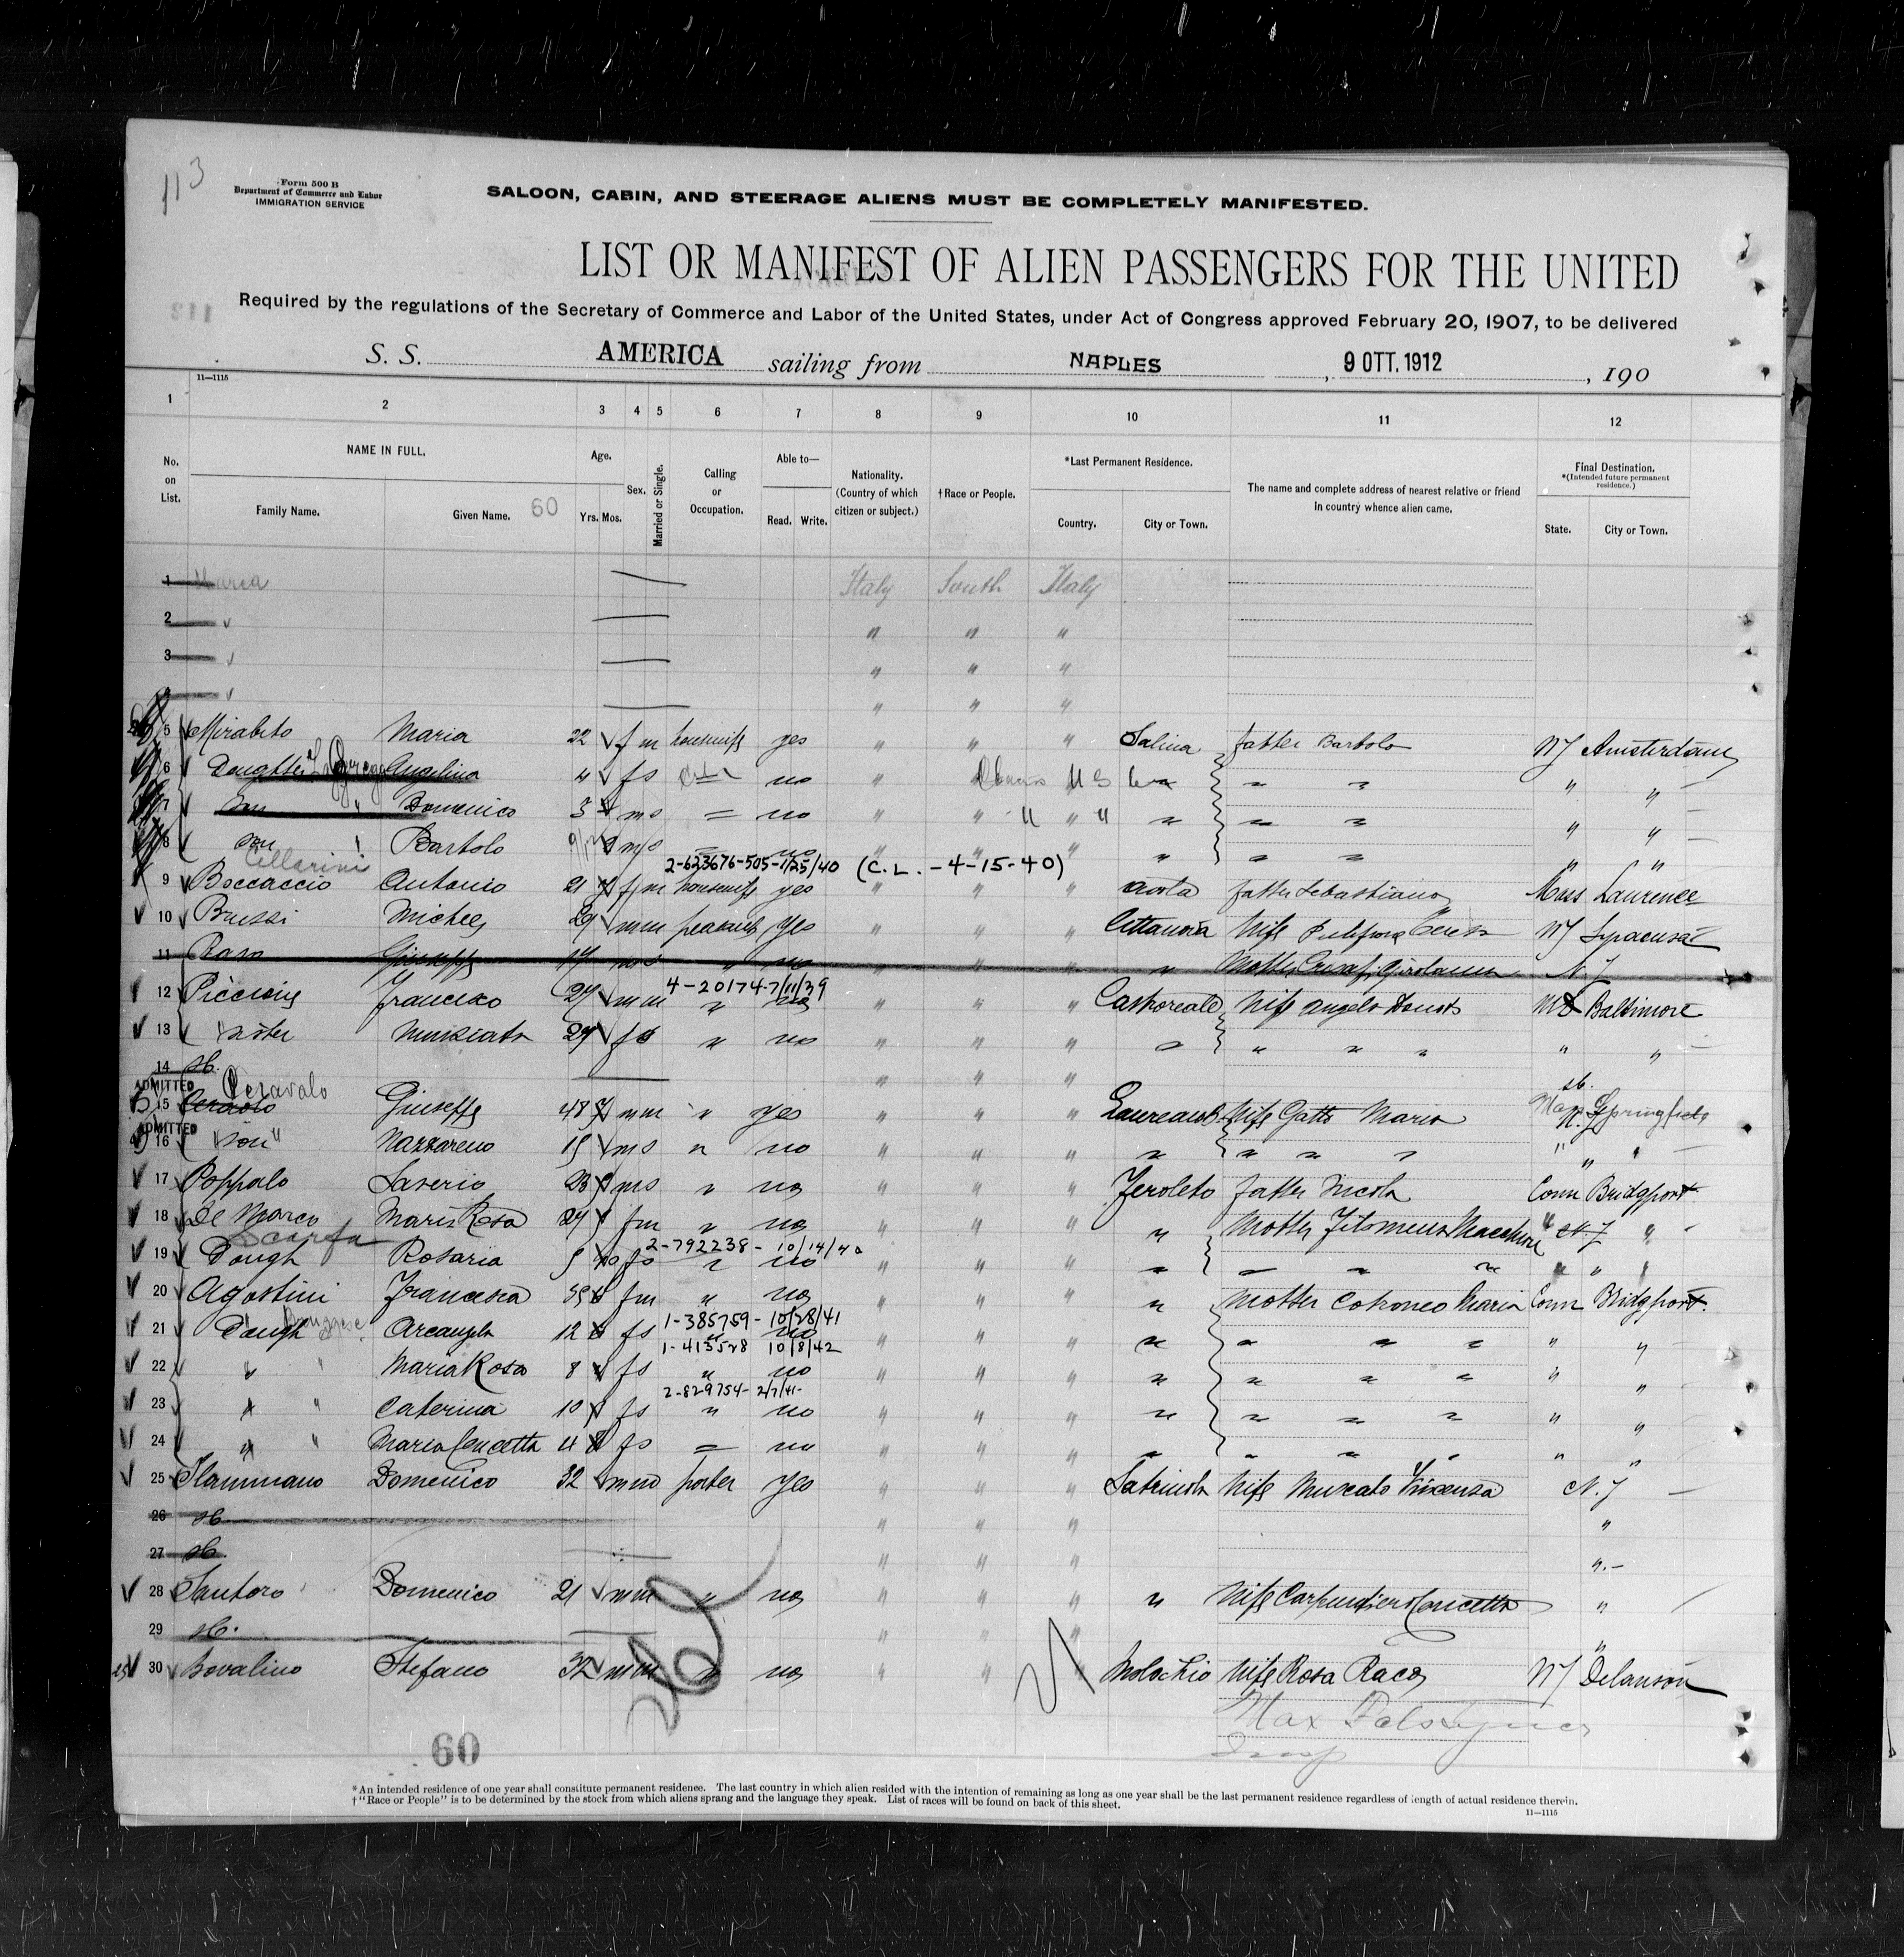 113
Form 500 B
Department of Commerce and Labor
IMMIGRATION SERVICE
SALOON, CABIN, AND STEERAGE ALIENS MUST BE COMPLETELY MANIFESTED.
LIST OR MANIFEST OF ALIEN PASSENGERS FOR THE UNITED
Required by the regulations of the Secretary of Commerce and Labor of the United States, under Act of Congress approved February 20, 1907, to be delivered
S. S. AMERICA sailing from NAPLES, 9 OTT. 1912, 190
11—1115
1 2 3 4 5 6 7 8 9 10 11 12
No. on List.
NAME IN FULL.
Family Name. Given Name. 60
Age.
Yrs. Mos.
Sex.
Married or Single.
Calling or Occupation.
Able to—
Read. Write.
Nationality. (Country of which citizen or subject.)
†Race or People.
*Last Permanent Residence.
Country. City or Town.
The name and complete address of nearest relative or friend in country whence alien came.
Final Destination.
*(Intended future permanent residence.)
State. City or Town.
1 Italy South Italy
2 " " "
3 " " "
" " "
5 Mirabito Maria 22 f m housewife yes " " Salina father Bartolo NY Amsterdam
6 Daughter Angelina 4 f s no " " "
7 son " Domenico 3 m s no " " " "
8 son Bartolo m s no " "
Cellarini 2-623676-505-1/25/40 (C.L. - 4-15-40)
9 Boccaccio Antonio 21 f m housewife yes " " " father Sebastiano Mass Laurence
10 Michele 29 m m peasant yes " " " Cittanova Wife NY
11 Raso Giuseppe 17 m s " no " " " Mother N.J
4-20174-7/11/39
12 Francesco 27 m m " no " " " Castroreale Wife Angela Md Baltimore
13 sister 27 f s " no " " " " " " " "
14 sb. " " "
ADMITTED Ceravolo sb.
15 Ceravolo Giuseppe 48 m m " yes " " " Wife Gatto Maria Mass Springfield
ADMITTED
16 " son " Nazzareno 15 m s " no " " " " " " "
17 Poppalo Saverio 23 m s " no " " " Feroleto father Nicola Conn Bridgport
18 De Marco Maria Rosa 27 f m " no " " " " Mother Filomena N.J "
Scarfa 2-792238-10/14/40
19 Daugh Rosaria 5 f s " no " " " "
20 Agostini Francesca 35 f m " no " " " " Mother Cotroneo Maria Conn Bridgport
1-385759-10/28/41
21 Daugh Arcangela 12 f s " no " " " " " " " " "
1-413528 10/8/42
22 " " Maria Rosa 8 f s " no " " " " " " " " "
2-829754-2/7/41-
23 " " Caterina 10 f s " no " " " " " " " " "
24 " " Maria Concetta 4 f s no " " " " " " " " "
25 Flammano Domenico 32 m m porter yes " " " Wife Muscato Vincenza N.J
26 sb " " " "
27 sb. " " " "
28 Santoro Domenico 21 m m " no " " " " Wife Concetta "
29 sb. " " " "
30 Bovalino Stefano 32 m m " no " " " Molochio Wife Rosa Raco NY Delanson
26
60
*An intended residence of one year shall constitute permanent residence. The last country in which alien resided with the intention of remaining as long as one year shall be the last permanent residence regardless of length of actual residence therein.
†"Race or People" is to be determined by the stock from which aliens sprang and the language they speak. List of races will be found on back of this sheet.
11—1115